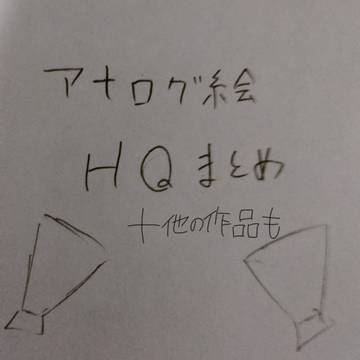 アナログ絵
HQまとめ
十他の作品も